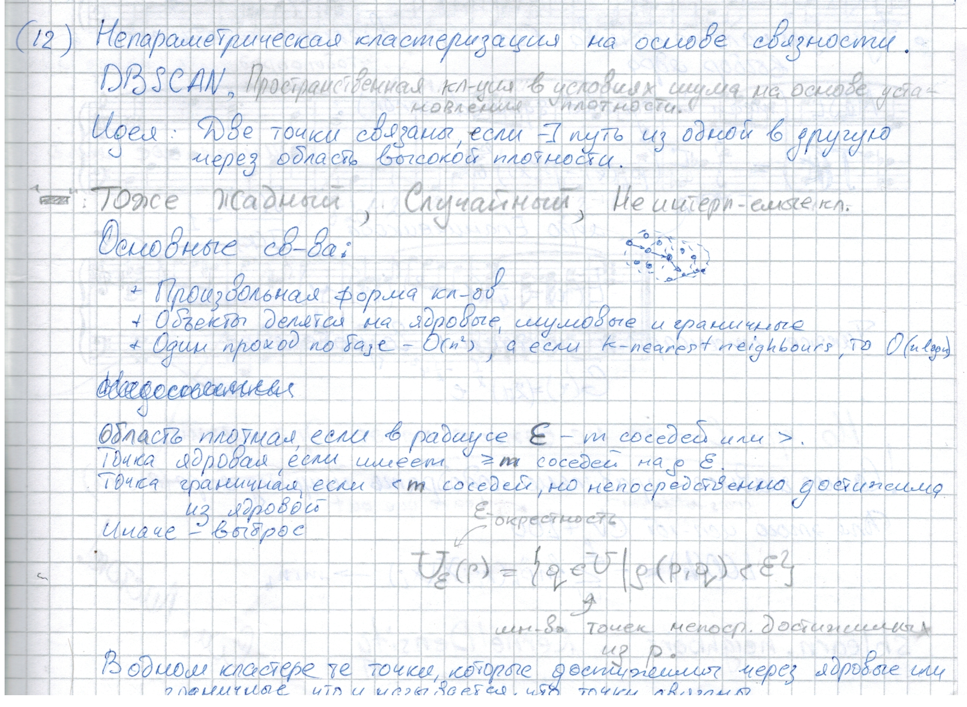 (12) Непараметрическая кластеризация на основе связности.
DBSCAN, Пространственная кл-ция в условиях шума на основе уста-
новления плотности.
Идея: Две точки связаны, если ∃ путь из одной в другую
через область высокой плотности.
: Тоже Жадный, Случайный, Не интерп-емые кл.
Основные св-ва:
+ Произвольная форма кл-ов
+ Объекты делятся на ядровые, шумовые и граничные
+ Один проход по базе - O(n²), а если k-nearest neighbours, то O(n log n)
Область плотная, если в радиусе ε - m соседей или >.
Точка ядровая, если имеет ≥ m соседей на ρ ε.
Точка граничная, если < m соседей, но непосредственно достижима
из ядровой
Иначе - выброс
ε-окрестность
U_ε(p) = {q ∈ U | ρ(p,q) < ε}
мн-во точек непоср. достижимых
из p.
В одном кластере те точки, которые достижимы через ядровые или
граничные, что и называется, что точки связаны